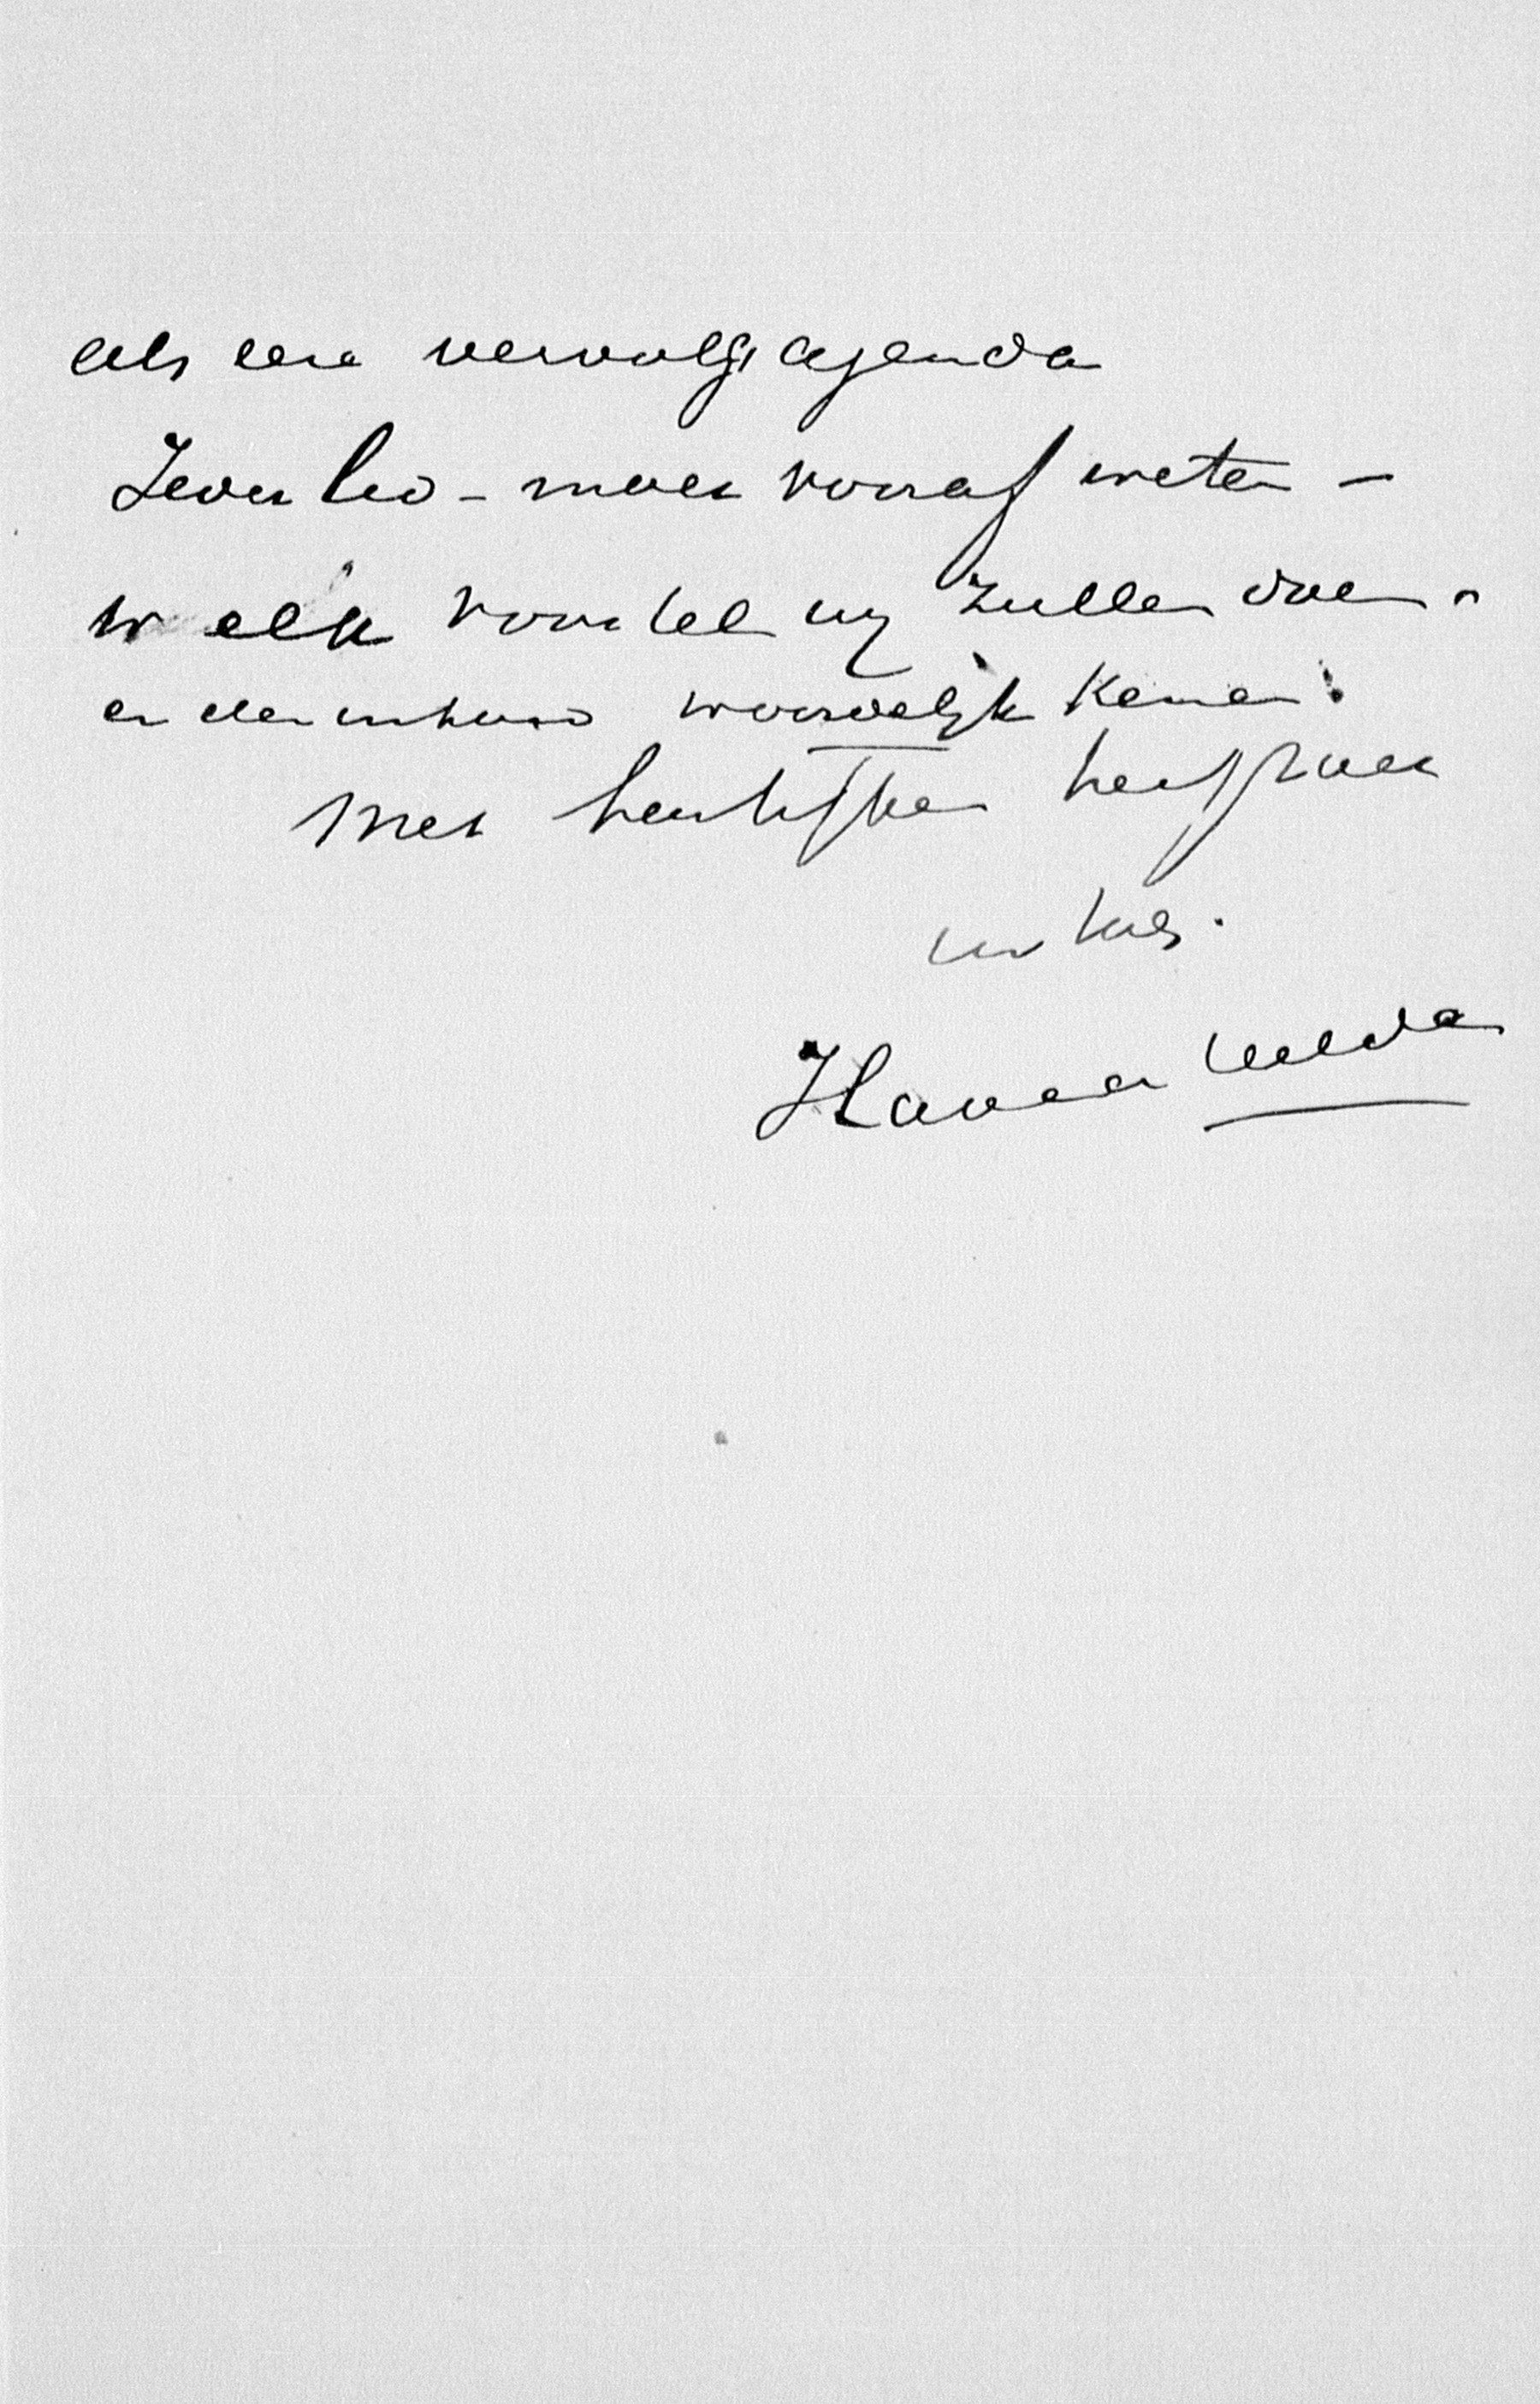 als een vervolg agenda
Ieder lid - moet vooraf weten -
welk voorstel wij zullen doen -
en den inhoud woordelijk kennen.
Met hartelijken handdruk
uw toeg.
H van der Velde